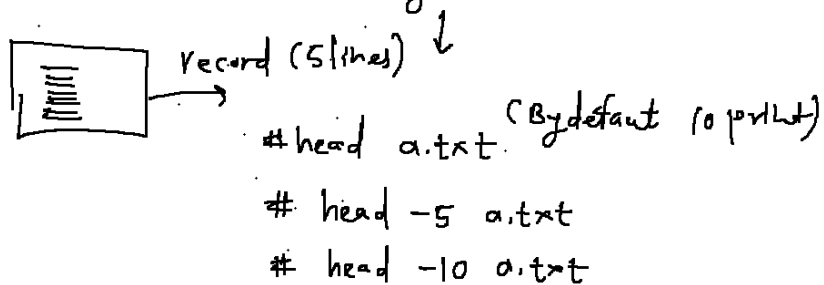 record (5 lines)
# head a.txt. (By defaut 10 print)
# head -5 a.txt
# head -10 a.txt